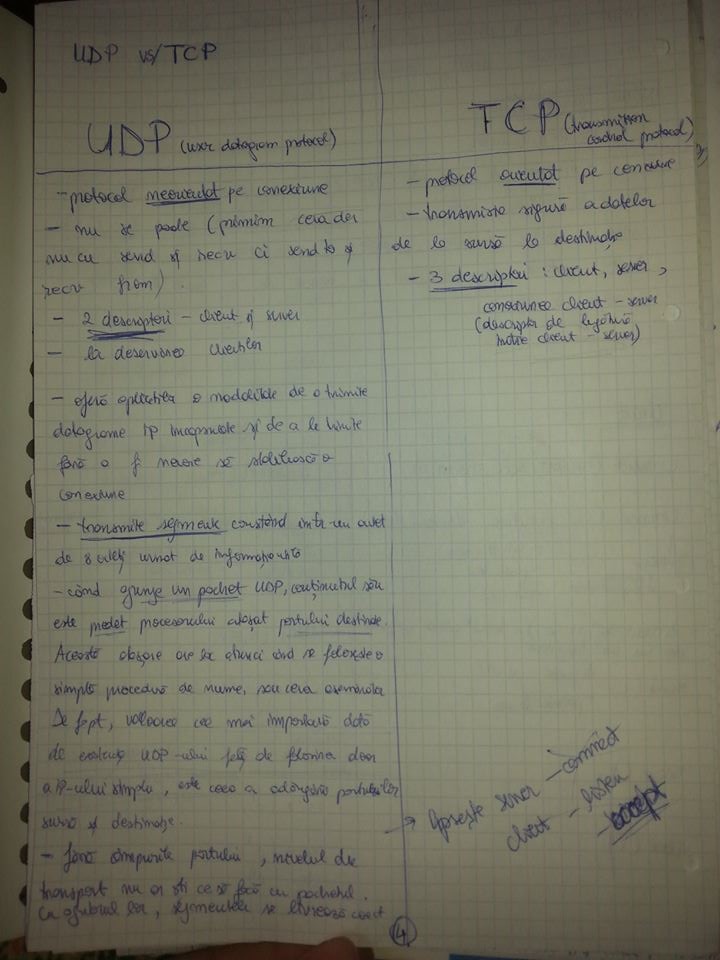 UDP vs/ TCP
UDP (user datagram protocol)
- protocol neorientat pe conexiune
- nu se poate (primim ceva de
nu cu send și recv ci send to și
recv from)
- 2 descriptori - client și server
- la deservirea clienților
- oferă aplicațiilor o modalitate de a trimite
datagrame IP încapsulate și de a le trimite
fără a fi nevoie să stabilească o
conexiune
- transmite segmente constând într-un antet
de 8 octeți urmat de informația
- când ajunge un pachet UDP, conținutul său
este predat procesorului atașat portului destinație.
Această atașare are loc atunci când se folosește o
simplă procedură de nume, sau ceva asemănător
De fapt, valoarea cea mai importantă dată
de existența UDP-ului față de folosirea doar
a IP-ului simplu, este ceea a adăugării porturilor
sursă și destinație.
- fără câmpurile portului, nivelul de
transport nu ar ști ce să facă cu pachetul.
Cu ajutorul lor, segmentele se livrează corect
TCP (transmition
control protocol)
- protocol orientat pe conexiune
- transmisie sigură a datelor
de la sursă la destinație
- 3 descriptori : client, server,
conexiunea client - server
(descriptor de legătură
între client - server)
→ server - connect
client - listen
- accept
4